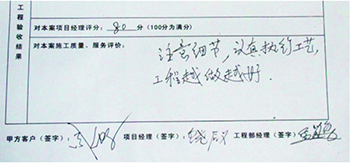 工程验收结果
对本案项目经理评分：80 分（100分为满分）
对本案施工质量、服务评价：
注意细节，认真执行工艺，
工程越做越好.
甲方客户（签字）： 项目经理（签字）： 工程部经理（签字）：